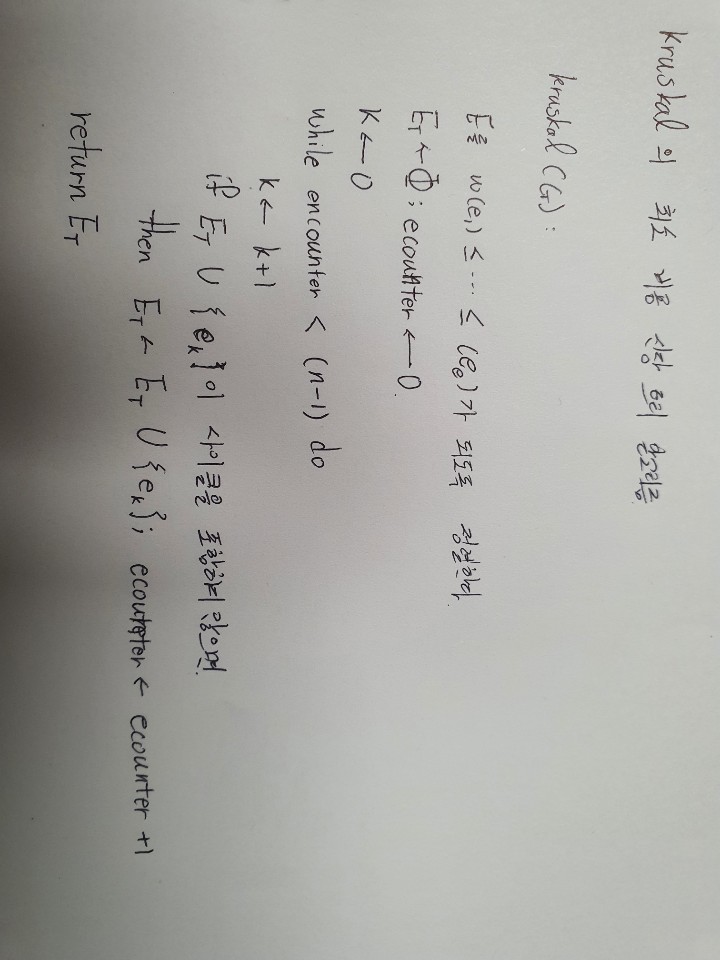 kruskal의 최소 비용 신장 트리 알고리즘
kruskal (G) :
E를 w(e₁) ≤ ··· ≤ (eₑ)가 되도록 정렬한다.
E_T ← Φ ; ecounter ← 0.
K ← 0
while encounter < (n-1) do
k ← k+1
if E_T ∪ {e_k}이 사이클을 포함하지 않으면.
then E_T ← E_T ∪ {e_k}; ecounter ← ecounter +1
return E_T